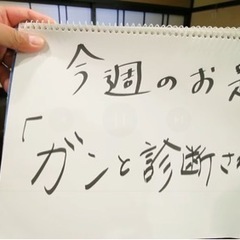 今週のお
「ガンと診断さ